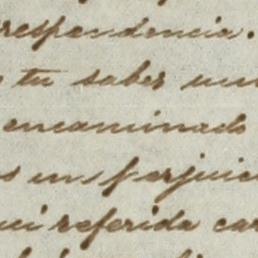 respondencia.
tu saber
encaminado
perjuic
referida car